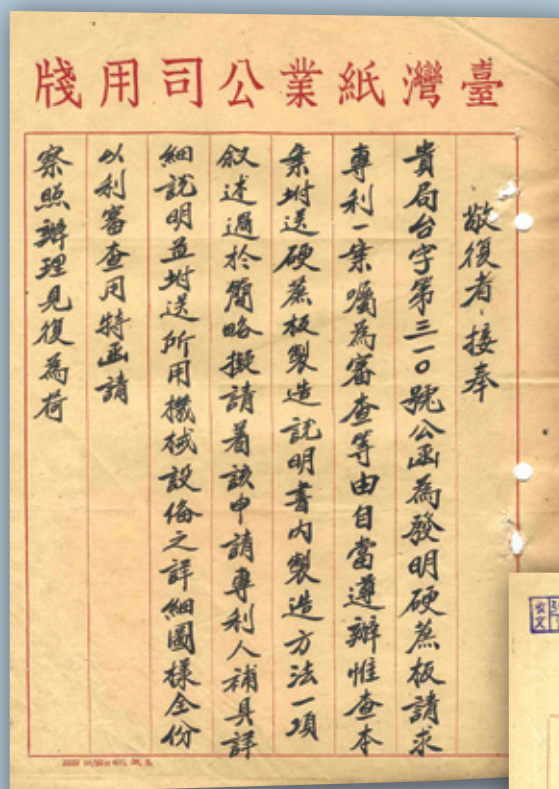 臺灣紙業公司用牋
敬復者、接奉
貴局台字第三一〇號公函為發明硬蔗板請求
專利一案囑為審查等由自當遵辦惟查本
案坿送硬蔗板製造說明書內製造方法一項
敘述過於簡略擬請着該申請專利人補具詳
細說明並坿送所用機械設俻之詳細圖樣全份
以利審查用特函請
察照辦理見復為荷
收文